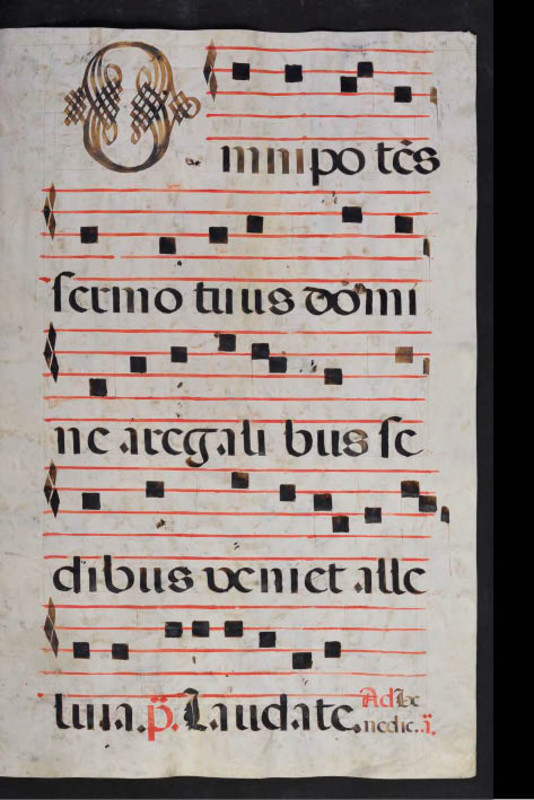 Omnipotēs
sermo tuus domi
ne a regali bus se
dibus veniet alle
luia. p̄. Laudate. Ad Be
nedic. .ā.